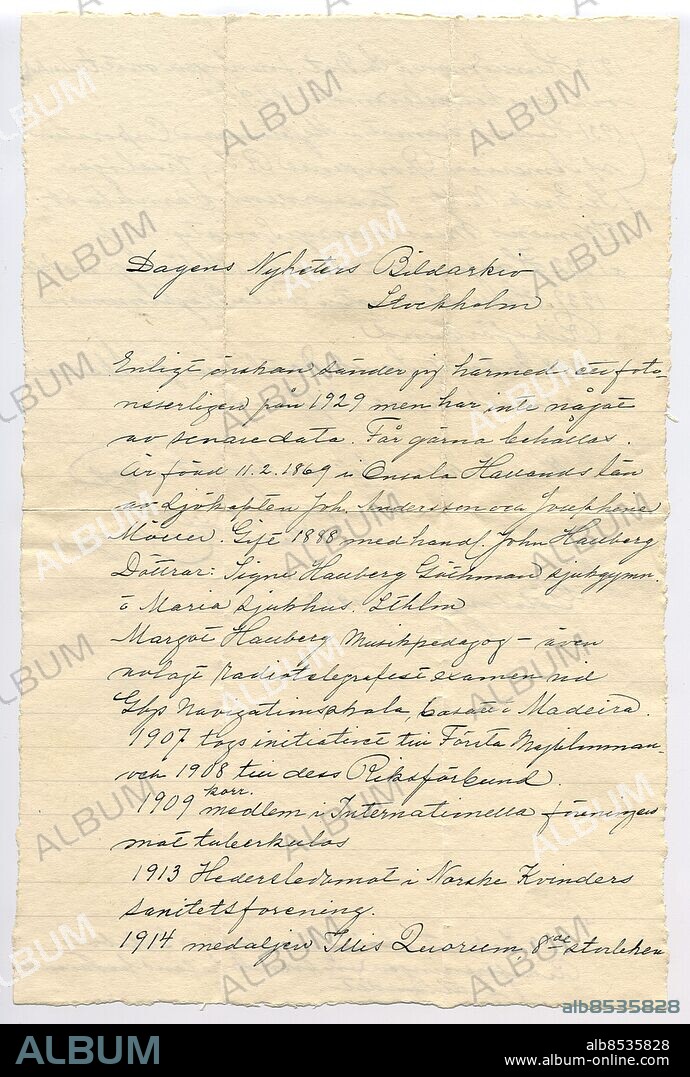 Dagens Nyheters Bildarkiv
Stockholm
Enligt önskan sänder jag härmed ett foto-
visserligen från 1929 men har inte något
av senare data. Får gärna behållas.
Är född 11.2.1869 i Onsala Hallands län
av Sjökapten Joh. Andersson och Josephina
Möller. Gift 1888 med handl. John Hallberg
Döttrar: Signe Hallberg Göthman sjukgymn.
å Maria sjukhus. Sthlm
Margot Hallberg Musikpedagog - även
avlagt radiotelegrafist examen vid
Gbgs Navigationsskola, bosatt i Madeira.
1907 togs initiativet till Första Majblomman
och 1908 till dess Riksförbund.
korr.
1909 medlem i Internationella föreningen
mot tuberkulos
1913 Hedersledamot i Norske Kvinders
sanitetsforening.
1914 medaljen Illis Quorum. 8de storleken
ALBUM
alb8535828
ALBUM
alb8535828
www.album-online.com